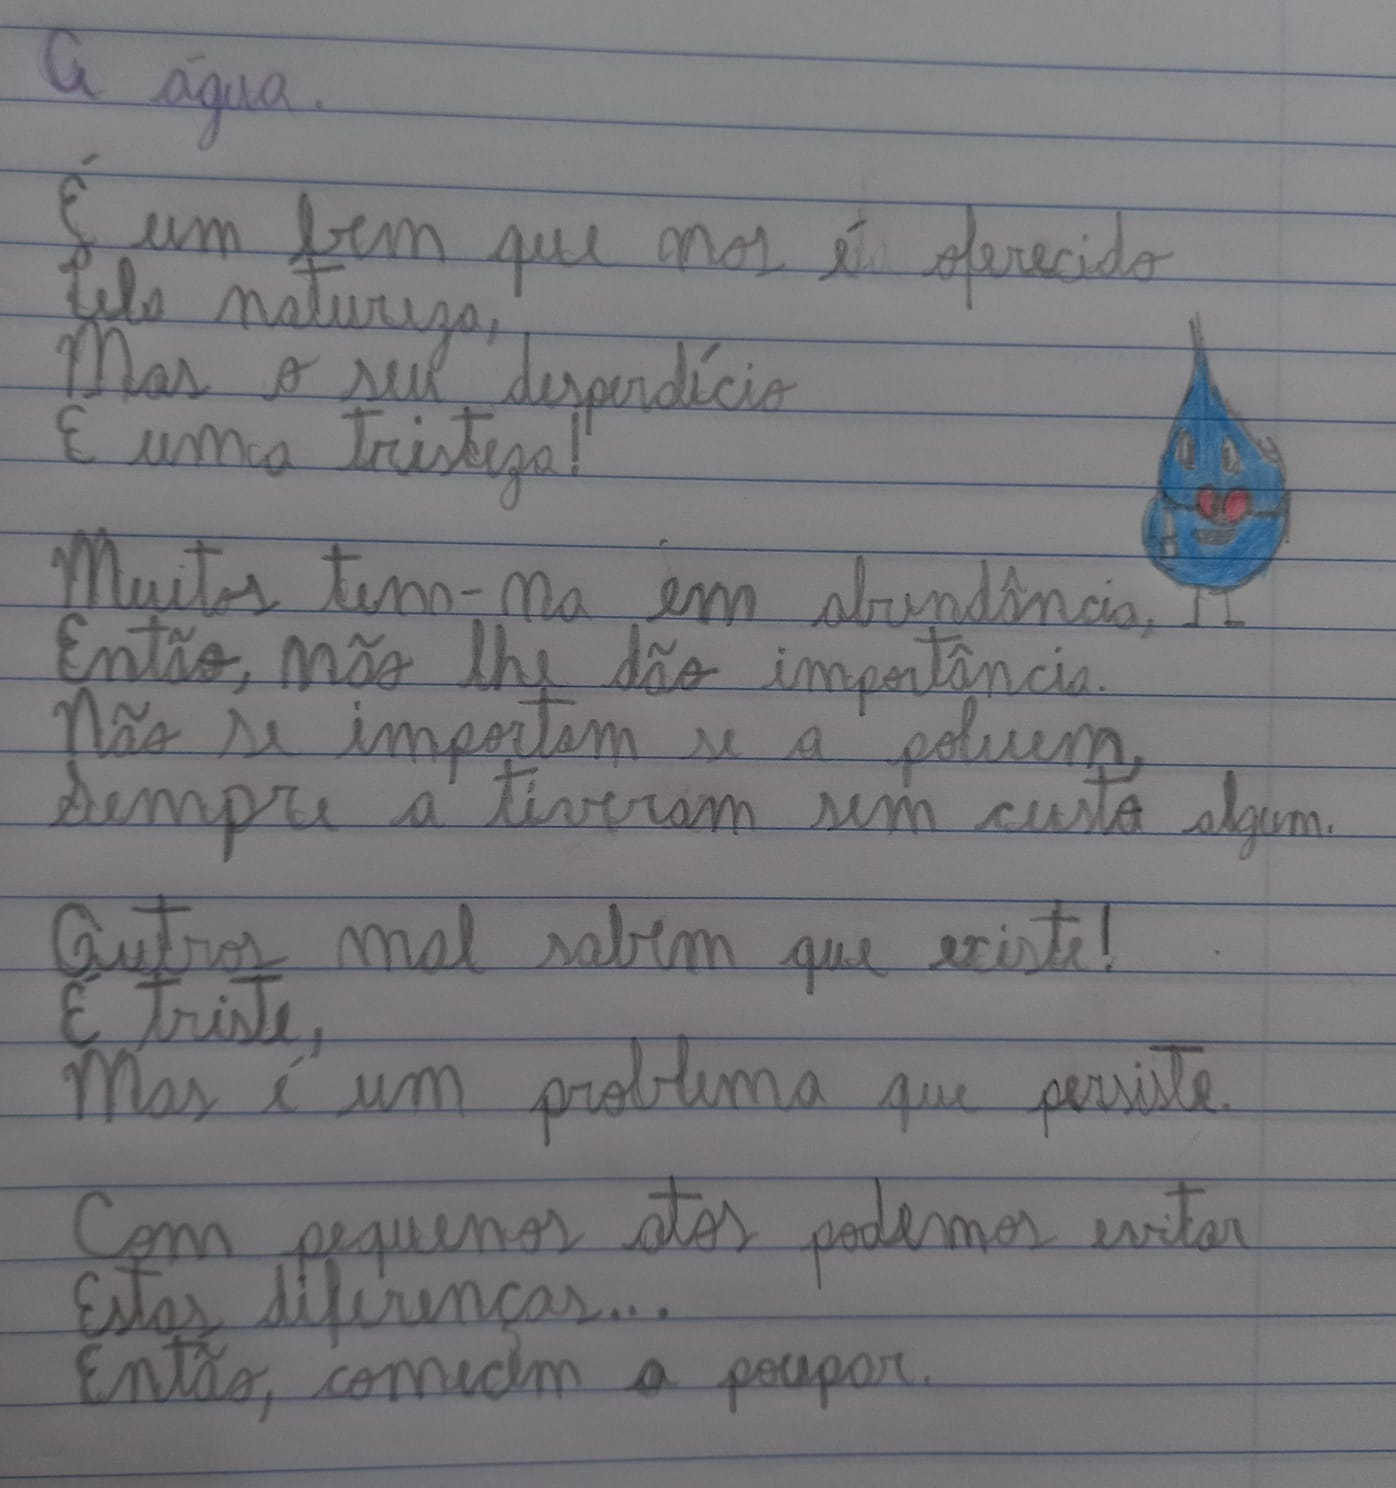 A água.
É um bem que nos é oferecido
Pela natureza,
Mas o seu desperdício
É uma tristeza!
Muitos tem-na em abundância,
Então, não lhe dão importância.
Não se importam se a poluem,
Sempre a tiveram sem custo algum.
Outros mal sabem que existe!
É triste,
Mas é um problema que persiste.
Com pequenos atos podemos evitar
Estas diferenças...
Então, comecem a poupar.